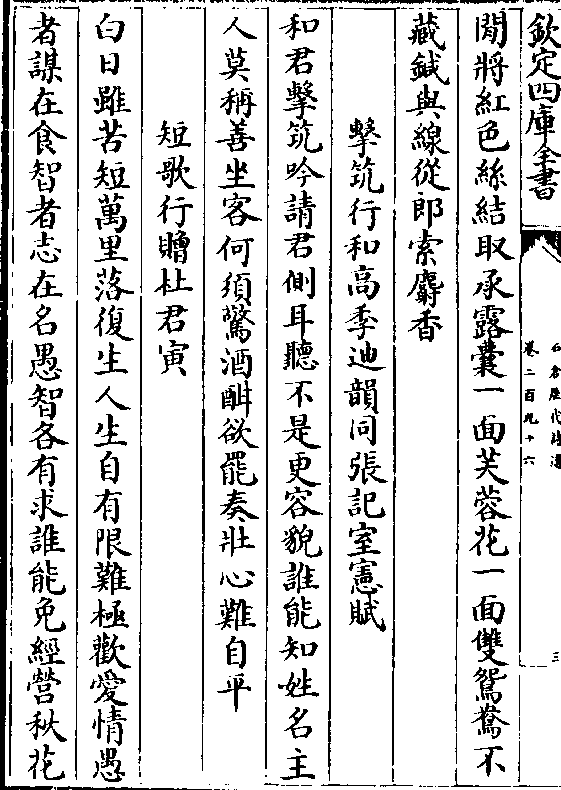 欽定四庫全書
石倉歷代詩選
卷二百九十六
三
閒將紅色絲結取承露囊一面芙蓉花一面雙鴛鴦不
藏鍼與線從郎索麝香
擊筑行和高季迪韻同張記室憲賦
和君擊筑吟請君側耳聽不是更容貌誰能知姓名主
人莫稱善坐客何須驚酒酣欲罷奏壯心難自平
短歌行贈杜君寅
白日雖苦短萬里落復生人生自有限難極歡愛情愚
者謀在食智者志在名愚智各有求誰能免經營秋花